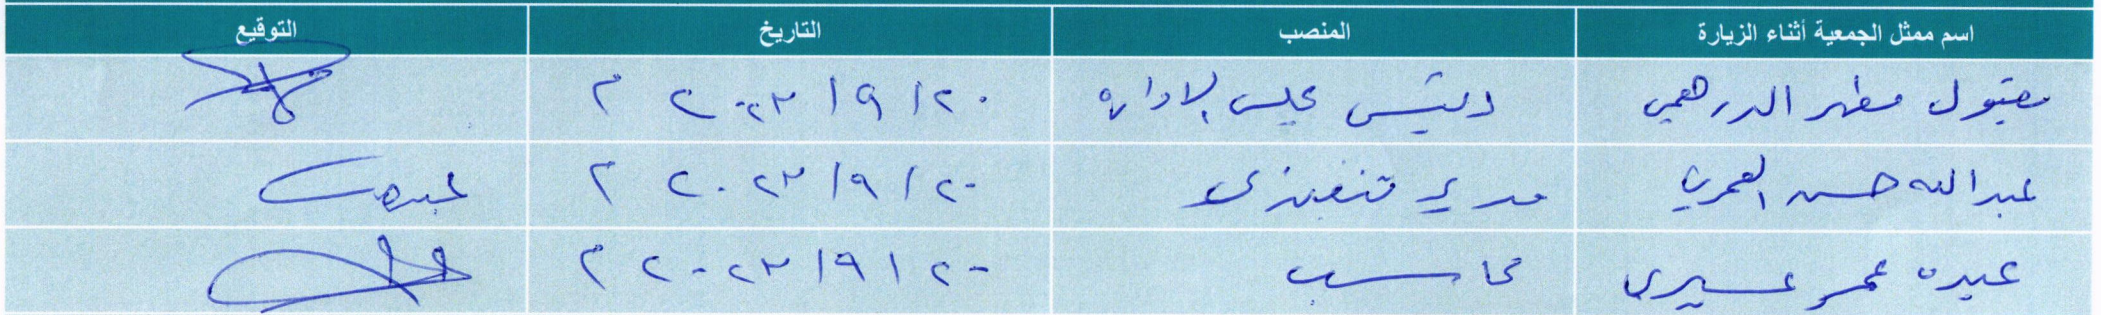 اسم ممثل الجمعية أثناء الزيارة المنصب التاريخ التوقيع
مقبول مطهر الدرهمي رئيس مجلس الإدارة ٢٠/٩/٢٠٢٣ م
عبدالله حسن العمري مدير تنفيذي ٢٠/٩/٢٠٢٣ م
عبده عمر عسيري محاسب ٢٠/٩/٢٠٢٣ م